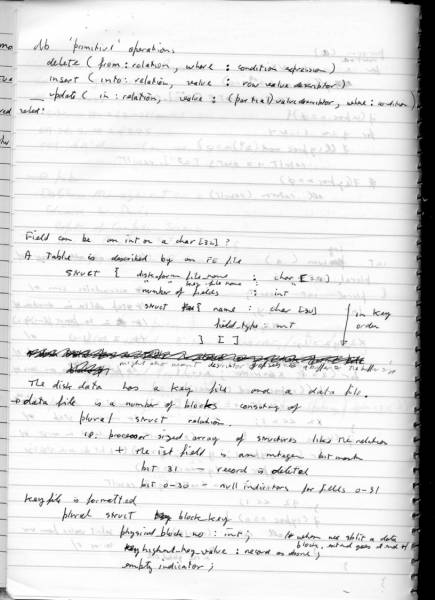 db 'primitive' operations
delete ( from : relation , where : condition expression )
insert ( into : relation, value : row value descriptor )
update ( in : relation, value : (partial) value descriptor, where : condition )
select :
Field can be an int or a char [32] ?
A Table is described by an FE file
struct { diskdataform file name : char [32]
" " key file name : "
number of fields : int
struct { name : char [32]
field_type : int
} [ ]
in key order
might also want descriptor
The disk data has a key file and a data file.
→ data file is a number of blocks consisting of
plural struct relation.
ie. processor sized array of structures like the relation
+ the 1st field is an integer bit mask
bit 31 — record is deleted
bit 0-30 — null indicators for fields 0-31
Key file is formatted
plural struct block_key
physical_block_no : int ;
highest_key_value : record as above ;
empty indicator ;
/* when we split a data
block, int end goes at end of